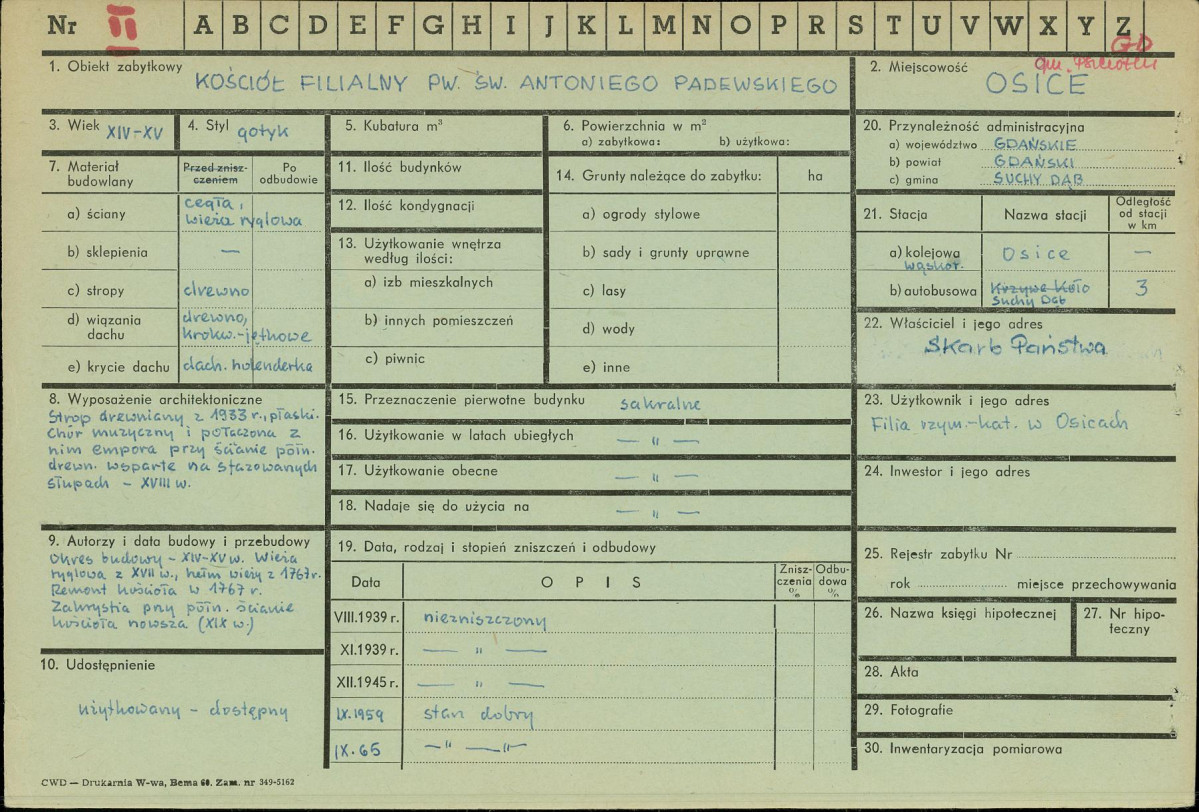 Nr II A B C D E F G H I J K L M N O P R S T U V W X Y Z
GD
gm.
1. Obiekt zabytkowy
KOŚCIÓŁ FILIALNY PW. ŚW. ANTONIEGO PADEWSKIEGO
2. Miejscowość
OSICE
3. Wiek XIV-XV
4. Styl gotyk
5. Kubatura m³
6. Powierzchnia w m²
a) zabytkowa: b) użytkowa:
20. Przynależność administracyjna
a) województwo GDAŃSKIE
b) powiat GDAŃSKI
c) gmina SUCHY DĄB
7. Materiał budowlany
Przed zniszczeniem
Po odbudowie
a) ściany cegła, wieża ryglowa
b) sklepienia —
c) stropy drewno
d) wiązania dachu drewno, krokw.-jętkowe
e) krycie dachu dach. holenderka
11. Ilość budynków
12. Ilość kondygnacji
13. Użytkowanie wnętrza
według ilości:
a) izb mieszkalnych
b) innych pomieszczeń
c) piwnic
14. Grunty należące do zabytku: ha
a) ogrody stylowe
b) sady i grunty uprawne
c) lasy
d) wody
e) inne
21. Stacja
Nazwa stacji
Odległość od stacji w km
a) kolejowa wąskot. Osice —
b) autobusowa Krzywe Koło
Suchy Dąb 3
22. Właściciel i jego adres
Skarb Państwa
8. Wyposażenie architektoniczne
Strop drewniany z 1933 r., płaski.
Chór muzyczny i połączona z
nim empora przy ścianie półn.
drewn. wsparte na fazowanych
słupach - XVIII w.
15. Przeznaczenie pierwotne budynku sakralne
16. Użytkowanie w latach ubiegłych — " —
17. Użytkowanie obecne — " —
18. Nadaje się do użycia na — " —
23. Użytkownik i jego adres
Filia rzym.-kat. w Osicach
24. Inwestor i jego adres
9. Autorzy i data budowy i przebudowy
Okres budowy - XIV-XV w. Wieża
ryglowa z XVII w., hełm wieży z 1767 r.
Remont kościoła w 1767 r.
Zakrystia przy półn. ścianie
kościoła nowsza (XIX w.)
10. Udostępnienie
użytkowany - dostępny
19. Data, rodzaj i stopień zniszczeń i odbudowy
Data
O P I S
Zniszczenia %
Odbudowa %
VIII.1939 r. niezniszczony
XI.1939 r. — " —
XII.1945 r. — " —
IX.1959 stan dobry
IX.65 —" —"—
25. Rejestr zabytku Nr
rok miejsce przechowywania
26. Nazwa księgi hipotecznej
27. Nr hipoteczny
28. Akta
29. Fotografie
30. Inwentaryzacja pomiarowa
CWD — Drukarnia W-wa, Bema 60. Zam. nr 349-5162